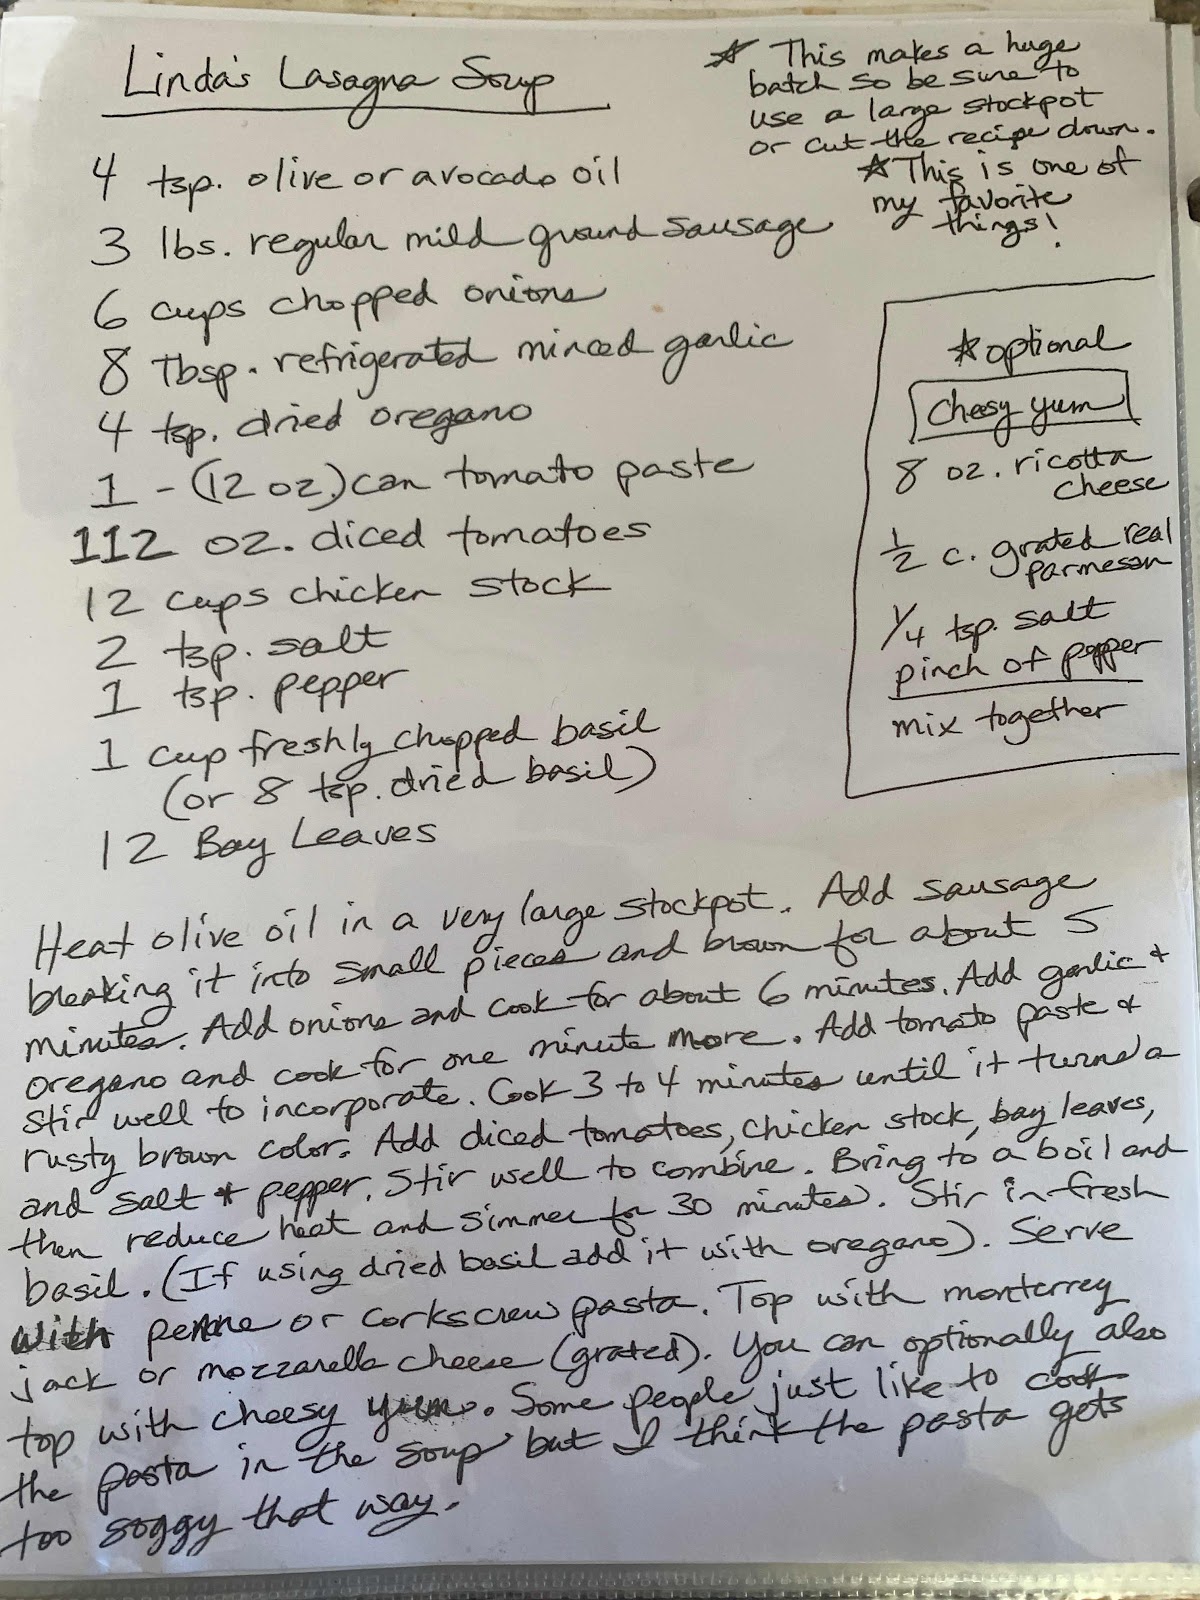 Linda's Lasagna Soup
☆ This makes a huge
batch so be sure to
use a large stockpot
or cut the recipe down.
☆ This is one of
my favorite
things!
4 tsp. olive or avocado oil
3 lbs. regular mild ground sausage
6 cups chopped onions
8 Tbsp. refrigerated minced garlic
4 tsp. dried oregano
1 - (12 oz.) can tomato paste
112 oz. diced tomatoes
12 cups chicken stock
2 tsp. salt
1 tsp. pepper
1 cup freshly chopped basil
(or 8 tsp. dried basil)
12 Bay Leaves
☆ optional
Cheesy yum
8 oz. ricotta
cheese
½ c. grated real
parmesan
1/4 tsp. salt
pinch of pepper
mix together
Heat olive oil in a very large stockpot. Add sausage
breaking it into small pieces and brown for about 5
minutes. Add onions and cook for about 6 minutes. Add garlic +
oregano and cook for one minute more. Add tomato paste +
stir well to incorporate. Cook 3 to 4 minutes until it turns a
rusty brown color. Add diced tomatoes, chicken stock, bay leaves,
and salt + pepper. Stir well to combine. Bring to a boil and
then reduce heat and simmer for 30 minutes. Stir in fresh
basil. (If using dried basil add it with oregano). Serve
with penne or corkscrew pasta. Top with monterrey
jack or mozzarella cheese (grated). You can optionally also
top with cheesy yum. Some people just like to cook
the pasta in the soup but I think the pasta gets
too soggy that way.